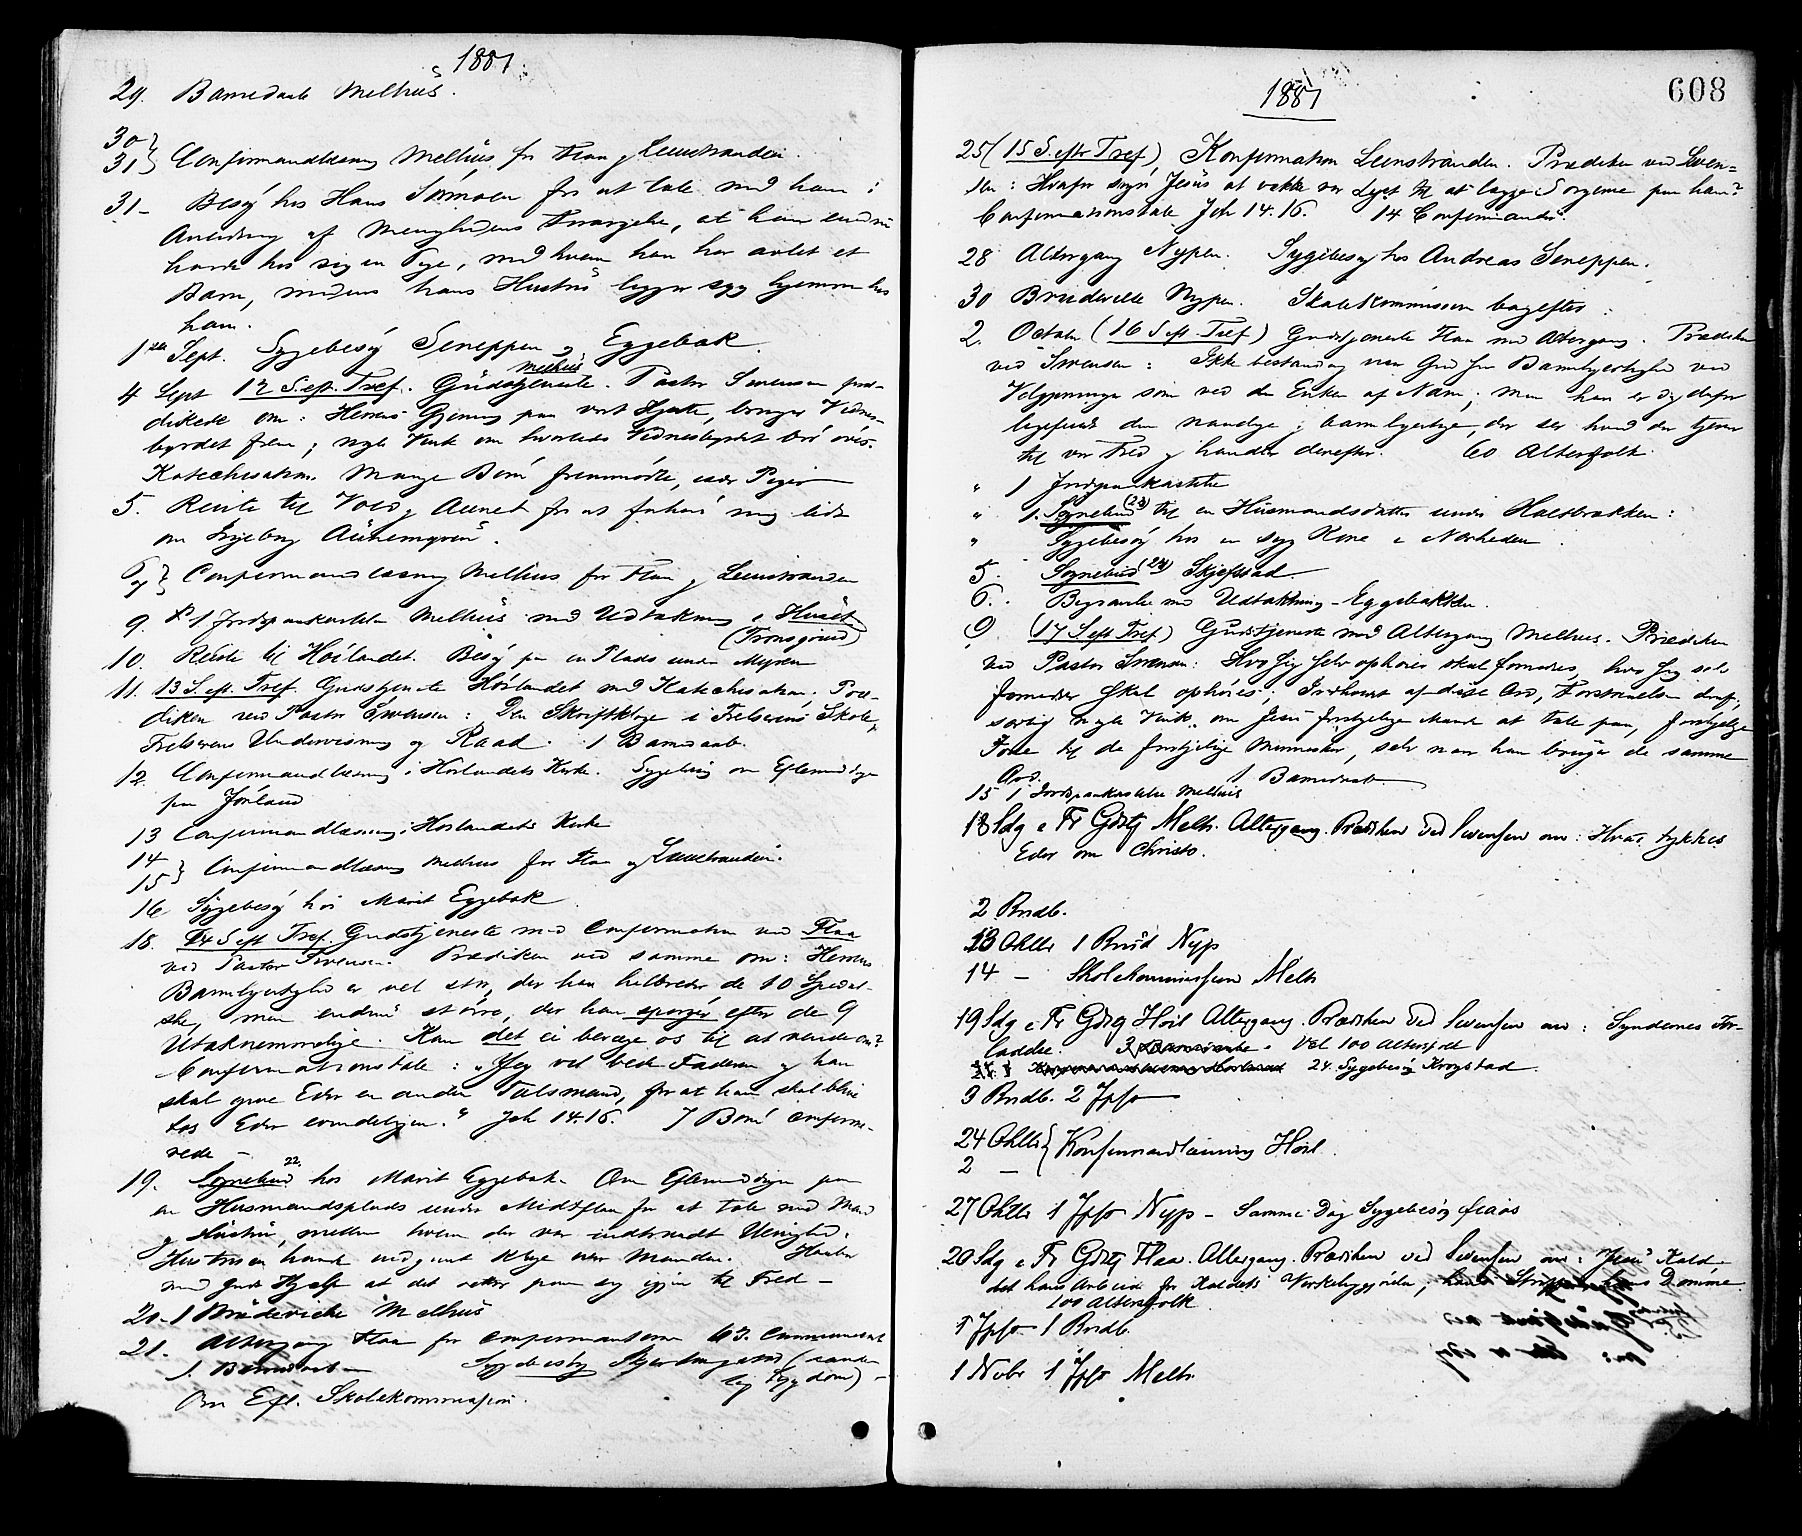 1881.
29. Barnedaab Melhus.
30}
31} Confirmandlæsning Melhus for Flaa og Leinstranden.
31- Besøg hos Hans Sørmoen for at tale med ham i
Anledning af Menighedens Forargelse, at han endnu
havde hos sig en Pige, med hvem han har avlet et
Barn, medens hans Hustru ligger syg hjemme hos
ham.
1ste Sept. Sygebesøg Seneppen og Eggebak.
4 Sept 12 S. eft. Tref. Gudstjeneste Melhus. Pastor Svensen præ-
dikede om: Herrens Gjerning paa vort Hjerte, bringer Vidnes-
byrdet frem; nogle Vink om hvorledes Vidnesbyrdet bør øves.
Katechisation. Mange Børn fremmødte, især Piger
5. Reiste til Vold og Aunet for at forhøre mig lidt
om Ingeborg
6 og
7} Confirmandlæsning Melhus for Flaa og Leinstranden
9. 1 Jordpaakastelse Melhus med Udtakning i Huset
(Tronsgrind)
10. Reiste til Høilandet. Besøg paa en Plads under Myren
11. 13 S. eft. Tref. Gudstjeneste Høilandet med Katechisation. Præ-
diken ved Pastor Svensen: Den Skriftkloge i Frelserens Skole,
Frelserens Undervisning og Raad. 1 Barnedaab.
12. Confirmandlæsning i Høilandets Kirke. Sygebesøg om Eftermiddagen
paa Jørland
13 Confirmandlæsning i Høilandets Kirke
14
15} Confirmandlæsning Melhus for Flaa og Leinstranden.
16 Sygebesøg hos Marit Eggebak
18. 14 S. eft Tref. Gudstjeneste med Confirmation ved Flaa
ved Pastor Svensen. Prædiken ved samme om: Herrens
Barmhjertighed er vel stor, der han helbreder de 10 Spedal-
ske, men endnu større, der han spørger efter de 9
Utaknemmelige. Kan det ei bevæge os til at vende om?
Confirmationstale: "Jeg vil bede Faderen og han
skal give Eder en anden Talsmand, for at han skal blive
hos Eder evindeligen." Joh 14.16. 7 Børn confirme-
rede -
19. Sognebud 22. hos Marit Eggebak. Om Eftermiddagen paa
en Husmandsplads under Midtflaa for at tale med Mand
og Hustru, mellem hvem der var indtraadt Uenighed.
Hustruen havde indgivet Klage over Manden. Haaber
med Guds Hjælp at det retter paa sig igjen til Fred -
20. 1 Brudevielse Melhus
21. Altergang Flaa for Confirmanterne 63. Communicanter
1. Barnedaab - Sygebesøg
Sygdom) -
Om Eft. Skolekommission.
608
1881
25 (15 S. eftr Tref) Konfirmation Leinstranden. Prædiken ved Sven-
sen: Hvorfor søger Jesus at vække vor Lyst til at lægge Sorgerne paa ham?
Confirmationstale Joh 14.16. 14 Confirmander.
28 Altergang Nypen. Sygebesøg hos Andreas Seneppen.
30 Brudevielse Nypen. Skolekommission bagefter.
2. October (16 S eft Tref) Gudstjeneste Flaa med Altergang. Prædiken
ved Svensen: Ikke bestandig viser Gud sin Barmhjertighed ved
Velgjerninger som ved den Enken af Nain; men han er dog derfor
ligefuldt den naadige og barmhjertige, der ser hvad der tjener
til vor Fred og handler derefter. 60 Altersfolk.
" 1 Jordpaakastelse
" 1. Sognebud (23) til en Husmandsdatter under Haltbrækken:
" Sygebesøg hos en syg Kone i Nærheden.
5. Sognebud (24) Skjefstad.
6. Begravelse med Udtakning - Eggebakken.
9. (17 S eft Tref) Gudstjeneste med Altergang Melhus. Prædiken
ved Pastor Svensen: Hvo sig selv ophøier skal fornedres, hvo sig selv
fornedrer skal ophøies; Indhold af disse Ord, Forstaaelse deraf,
samtlig nogle Vink om Jesu forskjellige Maade at tale paa, forskjellige
til de forskjellige Mennesker, selv naar han bruger de samme
Ord. 1 Barnedaab
15 1 Jordpaakastelse Melhuus
18 Sdg e Tr Gdstj Melh. Altergang. Prædiken ved Svensen om: Hvad tykkes
Eder om Christo.
2 Brndb.
13 Oktbr 1 Brud Nyp
14 - Skolekommission Melh
19 Sdg e Tr Gdstj Høil Altergang. Prædiken ved Svensen om: Syndernes For-
ladelse. Vel 100 Altersfolk
24. Sygebesøg Krogstad
3 Brndb. 2 Jpk
24 Oktbr
2 -} Konfirmandlæsning Høil.
27 Oktbr 1 Jpk Nyp - Samme Dag Sygebesøg Flaas
20 Sdg e Tr Gdstj Flaa. Altergang. Prædiken ved Svensen om: Jesu Kald,
det hans Arbeide for Kaldets Virkeliggjørelse,
100 Altersfolk
1 Jpk 1 Brndb.
1 Novbr 1 Jpk Melh